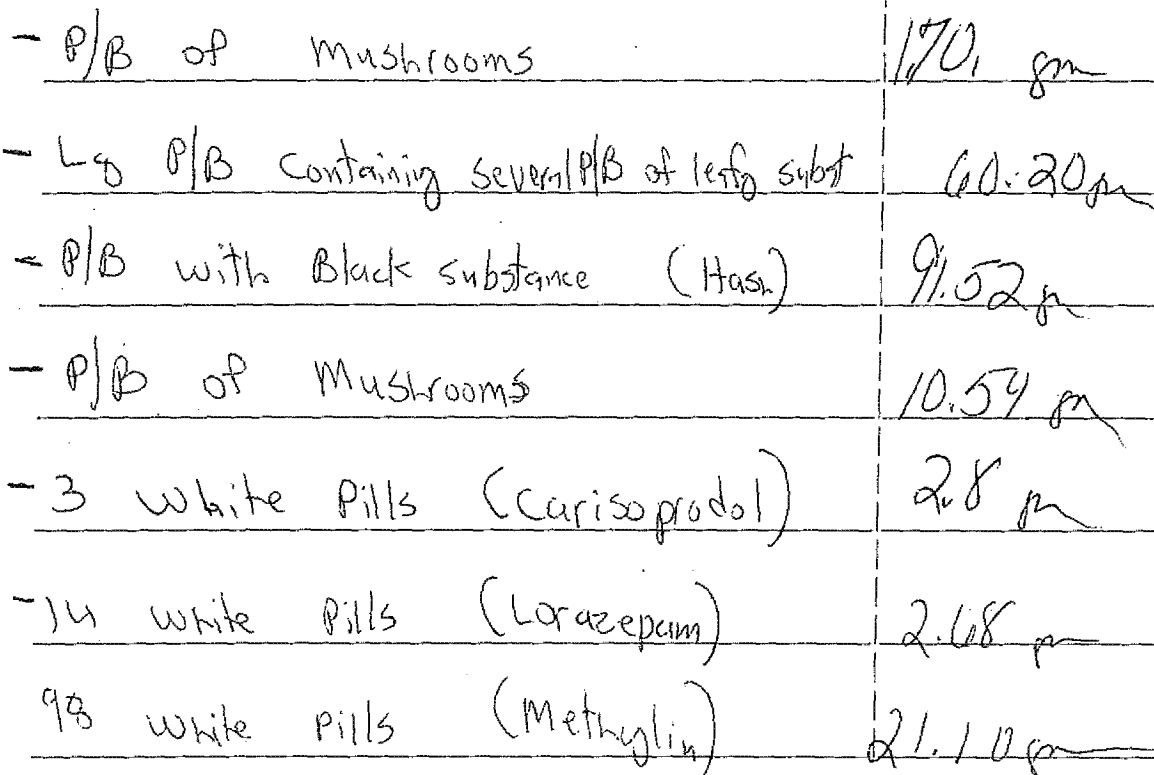 - P/B of Mushrooms 170. gm
- Lg P/B Containing several P/B of leafy subst 60.20 gm
- P/B with Black substance (Hash) 91.52 gm
- P/B of Mushrooms 10.54 gm
- 3 white Pills (Carisoprodol) 2.8 gm
- 14 white Pills (Lorazepam) 2.68 gm
98 white Pills (Methylin) 21.10 gm